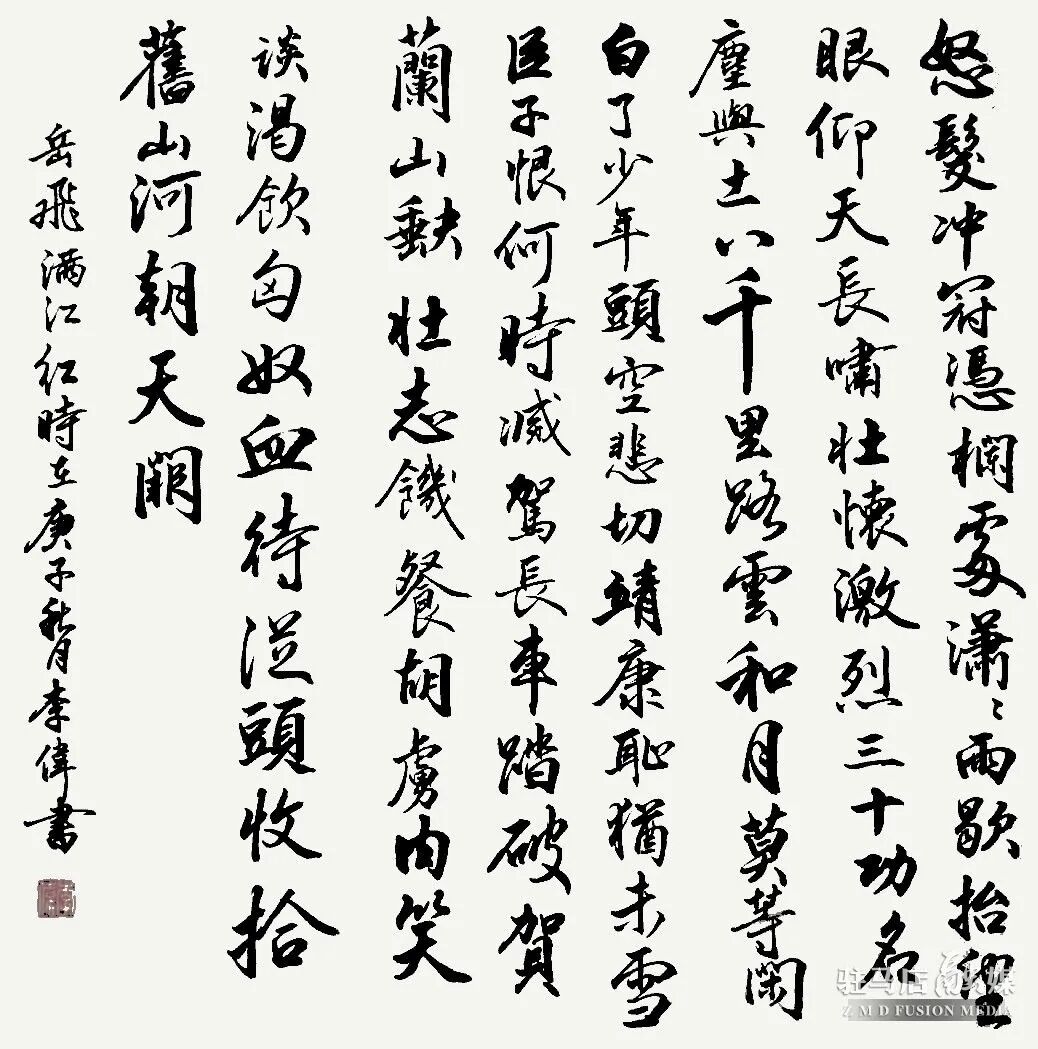 怒髮冲冠憑欄處瀟〻雨歇抬望
眼仰天長嘯壯懷激烈三十功名
塵與土八千里路雲和月莫等閑
白了少年頭空悲切靖康恥猶未雪
臣子恨何時滅駕長車踏破賀
蘭山缺壯志饑餐胡虜肉笑
談渴飲匈奴血待從頭收拾
舊山河朝天闕
岳飛滿江紅時在庚子秋月李偉書
驻马店融媒
Z M D FUSION MEDIA